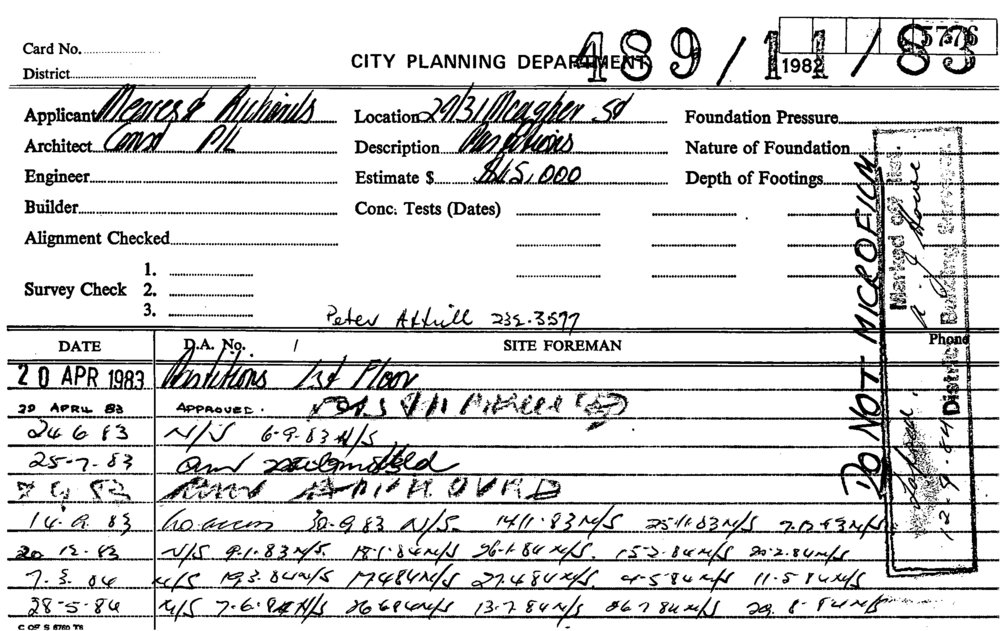 5776
Card No.
CITY PLANNING DEPARTMENT 489/11/83
1982
District
Applicant Meares & Richards Location 29/31 Meagher St Foundation Pressure
Architect Const P/L Description Partitions Nature of Foundation
Engineer Estimate $ $15,000 Depth of Footings
Builder Conc. Tests (Dates)
Alignment Checked
1.
Survey Check 2.
3.
Peter Attrill 232-3577
DATE D.A. No. / SITE FOREMAN Phone
20 APR 1983 Partitions 1st Floor
29 APRIL 83 APPROVED.
24 6 83 N/S 6-9-83 N/S
25-7-83
14-9 83 No access 30-9 83 N/S. 14-11-83 N/S 25-11-83 N/S 7-12-83 N/S
20 12-83 N/S 9-1-83 N/S. 18-1-84 N/S 26-1-84 N/S. 15-2-84 N/S 20-2-84 N/S
7-3-84 N/S 19-3-84 N/S 17-4-84 N/S 27-4-84 N/S 4-5-84 N/S 11-5-84 N/S
28-5-84 N/S 7-6-84 N/S 26-6-84 N/S 13-7-84 N/S 26-7-84 N/S 29-8-84 N/S
C OF S 6760 TS
DO NOT MICROFILM
Marked off
District Building Surveyor
12-9-84